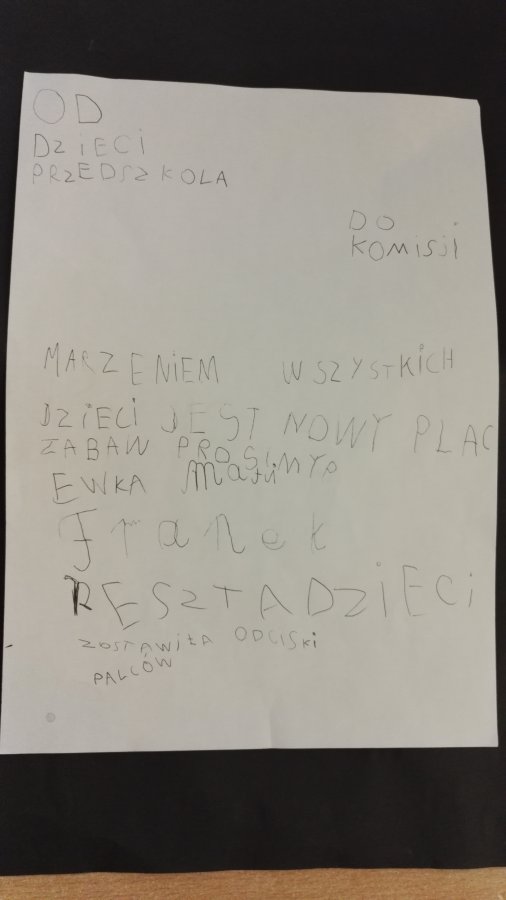 OD
DZIECI
PRZEDSZKOLA
DO
KOMISJI
MARZENIEM WSZYSTKICH
DZIECI JEST NOWY PLAC
ZABAW PROSIMY
EWKA
Franek
RESZTA DZIECI
ZOSTAWIŁA ODCISKI
PALCÓW